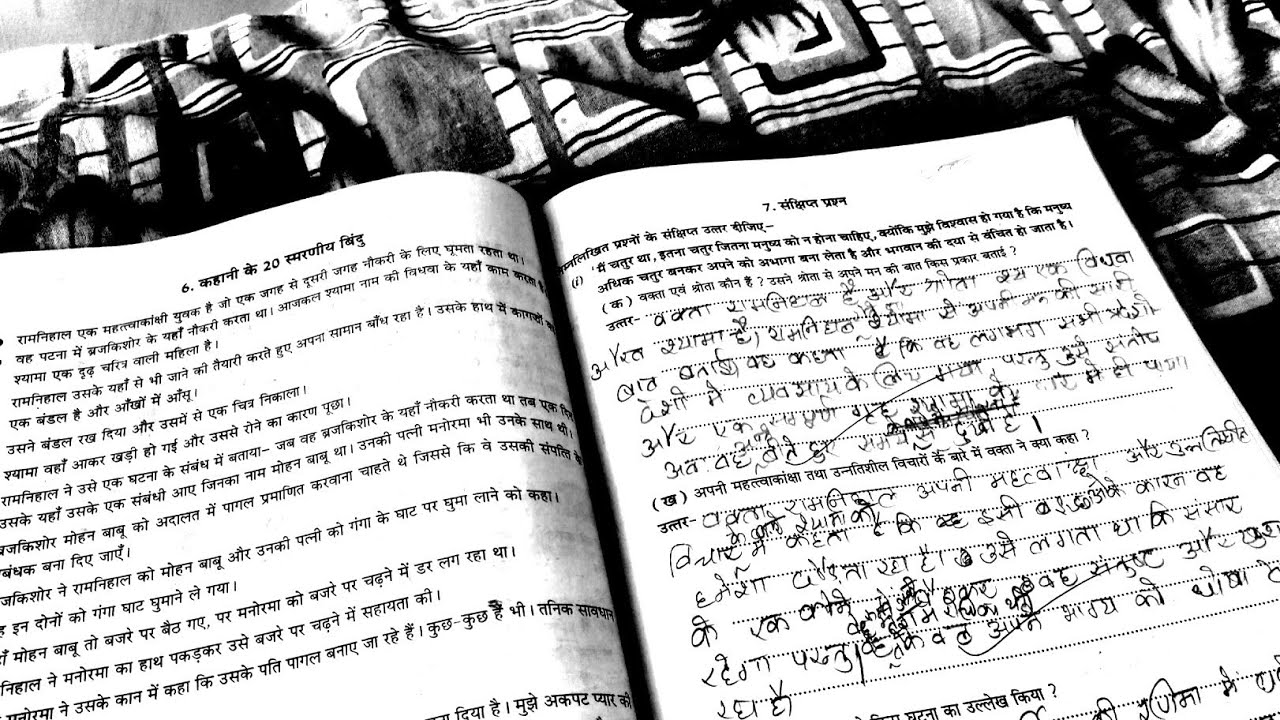 6. कहानी के 20 स्मरणीय बिंदु
रामनिहाल एक महत्त्वाकांक्षी युवक है जो एक जगह से दूसरी जगह नौकरी के लिए घूमता रहता था।
वह पटना में ब्रजकिशोर के यहाँ नौकरी करता था। आजकल श्यामा नाम की विधवा के यहाँ काम करता है
श्यामा एक दृढ़ चरित्र वाली महिला है।
रामनिहाल उसके यहाँ से भी जाने की तैयारी करते हुए अपना सामान बाँध रहा है। उसके हाथ में कागजों का
एक बंडल है और आँखों में आँसू।
उसने बंडल रख दिया और उसमें से एक चित्र निकाला।
श्यामा वहाँ आकर खड़ी हो गई और उससे रोने का कारण पूछा।
रामनिहाल ने उसे एक घटना के संबंध में बताया- जब वह ब्रजकिशोर के यहाँ नौकरी करता था तब एक दिन
उसके यहाँ उसके एक संबंधी आए जिनका नाम मोहन बाबू था। उनकी पत्नी मनोरमा भी उनके साथ थी।
ब्रजकिशोर मोहन बाबू को अदालत में पागल प्रमाणित करवाना चाहते थे जिससे कि वे उसकी संपत्ति के
प्रबंधक बना दिए जाएँ।
ब्रजकिशोर ने रामनिहाल को मोहन बाबू और उनकी पत्नी को गंगा के घाट पर घुमा लाने को कहा।
इन दोनों को गंगा घाट घुमाने ले गया।
मोहन बाबू तो बजरे पर बैठ गए, पर मनोरमा को बजरे पर चढ़ने में डर लग रहा था।
ने मनोरमा का हाथ पकड़कर उसे बजरे पर चढ़ने में सहायता की।
मनोरमा ने उसके कान में कहा कि उसके पति पागल बनाए जा रहे हैं। कुछ-कुछ हैं भी। तनिक सावधान
दिया है। मुझे अकपट प्यार की
7. संक्षिप्त प्रश्न
निम्नलिखित प्रश्नों के संक्षिप्त उत्तर दीजिए-
(i) 'मैं चतुर था, इतना चतुर जितना मनुष्य को न होना चाहिए, क्योंकि मुझे विश्वास हो गया है कि मनुष्य
अधिक चतुर बनकर अपने को अभागा बना लेता है और भगवान की दया से वंचित हो जाता है।
(क) वक्ता एवं श्रोता कौन हैं? उसने श्रोता से अपने मन की बात किस प्रकार बताई ?
उत्तर- वक्ता रामनिहाल है और श्रोता एक विधवा
औरत श्यामा है। रामनिहाल श्यामा से अपनी मन की सारी
बात बताई वह कहता है कि वह लगभग सभी प्रदेशो
में व्यवसाय के लिए गया परन्तु उसे संतोष
और एक सम्पूर्ण गृह श्यामा के में ही पाया
अब वह बीते हुए समय से दुखी है।
(ख) अपनी महत्वाकांक्षा तथा उन्नतिशील विचारों के बारे में वक्ता ने क्या कहा ?
उत्तर- वक्ता रामनिहाल अपनी महत्वाकांक्षा और उन्नतिशील
विचार के बारे में कहता है कि वह इसी के कारन वह
हमेशा दौड़ता रहा है। उसे लगता था कि संसार
के एक कोने में वह संतुष्ट और खुश
रहेगा परन्तु वह केवल अपने भाग्य को धोखा दे
रहा है
घटना का उल्लेख किया ?
में